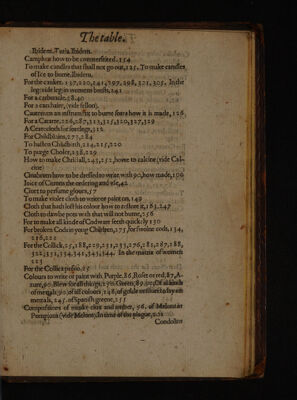 The table.
Ibidem. Varia. Ibidem.
Camphor how to be counterfeited. 254
To make candles that shall not go out, 125. To make candles
of Ice to burne. Ibidem.
For the canker. 197, 220, 241, 297, 298, 301, 305. In the
leg: vide leg: in womens brests, 241
For a carbuncle, 38.40
For a canchaier, (vide fellon).
Cauterium an instrument to burne sores how it is made, 126
For a Catarre, 226, 287, 323, 325, 320, 327, 329
A Cerecloth for sore legs, 312
For Childblains, 273, 284
To hasten Childbirth, 214, 215, 220
To purge Choler, 238, 229
How to make Christall, 243, 252, howe to calcine (vide Cal-
cine)
Cinabrium how to be dressed to write with 90, how made, 196
Iuice of Citrons the ordering and use, 42
Civet to perfume gloves, 57
To make violet cloth to write or paint on, 149
Cloth that hath lost his colour how to restore it, 163.247
Cloth to dawbe pots with that will not burne, 256
For to make all kinde of Codware seeth quickely 130
For broken Cods in young Children, 175, for swolne cods, 134,
236, 221
For the Collick, 25, 188, 229, 231, 233, 276, 281, 287, 288,
322, 331, 334, 341, 343, 344. In the matrix of women
223
For the Collica passio, 25
Colours to write or paint with Purple. 86, Roset or red, 87, A-
zure, 90. Blew for all things, 250. Green, 89, 90. Of all kinds
of mettals, 90. of all colours, 148, of golde or silver to lay on
mettals, 245. of Spanish greene, 255
Compositions of muske civet and amber, 56. of Melons (or
Pompions (vide Melons) In time of the plague, 202
Conduits